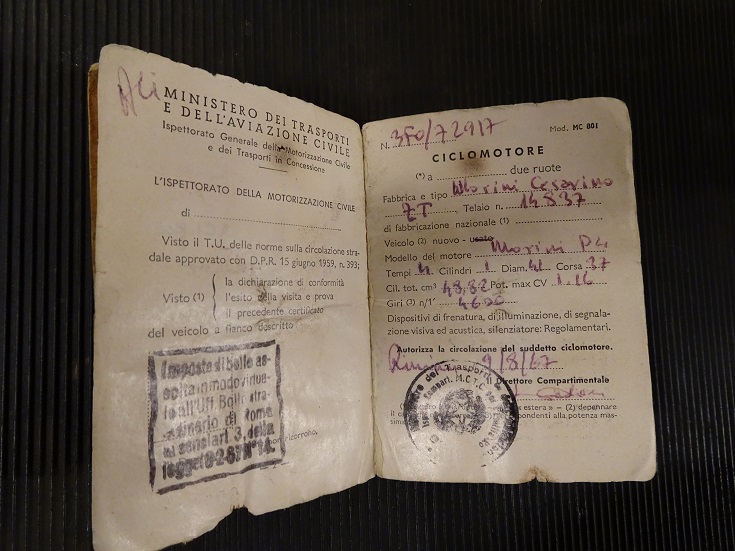 MINISTERO DEI TRASPORTI
E DELL'AVIAZIONE CIVILE
Ispettorato Generale della Motorizzazione Civile
e dei Trasporti in Concessione
L'ISPETTORATO DELLA MOTORIZZAZIONE CIVILE
di
Visto il T.U. delle norme sulla circolazione stra-
dale approvato con D.P.R. 15 giugno 1959, n. 393;
Visto (1)
la dichiarazione di conformità
l'esito della visita e prova
il precedente certificato
del veicolo a fianco descritto
Imposta di bollo as-
solta in modo virtua-
le all'Uff. Bollo stra-
ordinario di Roma
ai sensi art 3 della
legge N° 14.
N. 3F0/72917
Mod. MC 801
CICLOMOTORE
(*) a due ruote
Fabbrica e tipo Morini Cesarino
ZT, Telaio n. 14837
di fabbricazione nazionale (1)
Veicolo (2) nuovo - usato
Modello del motore Morini
Tempi 4 Cilindri 1 Diam. 41 Corsa 37
Cil. tot. cm³ 48,82 Pot. max CV 1.16
Giri (3) n/1' 4600
Dispositivi di frenatura, di illuminazione, di segnala-
zione visiva ed acustica, silenziatore: Regolamentari.
Autorizza la circolazione del suddetto ciclomotore.
9/8/67
Il Direttore Compartimentale
estera » - (2) depennare